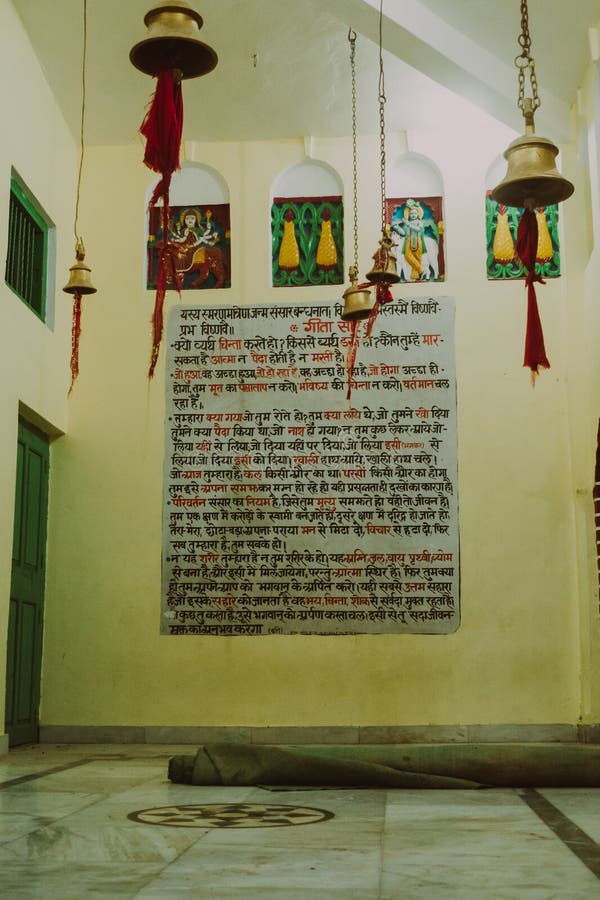 यस्य स्मरणमात्रेण जन्म संसार बन्धनात। विष्णवे-
प्रभ विष्णवे॥
गीता सार
क्यों व्यर्थ चिन्ता करते हो? किससे व्यर्थ हो? कौन तुम्हें मार-
सकता है आत्मा न पैदा होती है न मरती है।
जो हुआ, वह अच्छा हुआ, जो हो रहा है, वह अच्छा हो रहा है, जो होगा अच्छा ही
होगा, तुम भूत का पश्चाताप न करो। भविष्य की चिन्ता न करो। वर्तमान चल
रहा है।
तुम्हारा क्या गया जो तुम रोते हो? तुम क्या लाये थे, जो तुमने खो दिया
तुमने क्या पैदा किया था, जो नाश हो गया? न तुम कुछ लेकर आये जो-
लिया यहीं से लिया, जो दिया यहीं पर दिया, जो लिया इसी (भगवान) से
लिया, जो दिया इसी को दिया। खाली हाथ आये, खाली हाथ चले।
जो आज तुम्हारा है। कल किसी और का था। परसों किसी और का होगा
तुम इसे अपना समझकर मग्न हो रहे हो यही प्रसन्नता ही दुःखों का कारण है।
परिवर्तन संसार का नियम है, जिसे तुम मृत्यु समझते हो वही तो जीवन है।
तुम एक क्षण में करोड़ों के स्वामी बन जाते हो, दूसरे क्षण में दरिद्र हो जाते हो,
तेरा-मेरा, छोटा-बड़ा, अपना-पराया मन से मिटा दो, विचार से हटा दो, फिर
सब तुम्हारा है, तुम सबके हो।
न यह शरीर तुम्हारा है न तुम शरीर के हो। यह अग्नि, जल, वायु पृथ्वी, व्योम
से बना है, और इसी में मिल जायेगा, परन्तु आत्मा स्थिर है। फिर तुम क्या
हो तुम अपने आप को भगवान् के अर्पित करो। यही सबसे उत्तम सहारा
है जो इसके सहारे को जानता है वह भय, चिन्ता, शोक से सर्वदा मुक्त रहता है।
कुछ तू करता है, उसे भगवान् को अर्पण करता चल। इसी से तू सदा जीवन-
मुक्त का अनुभव करेगा